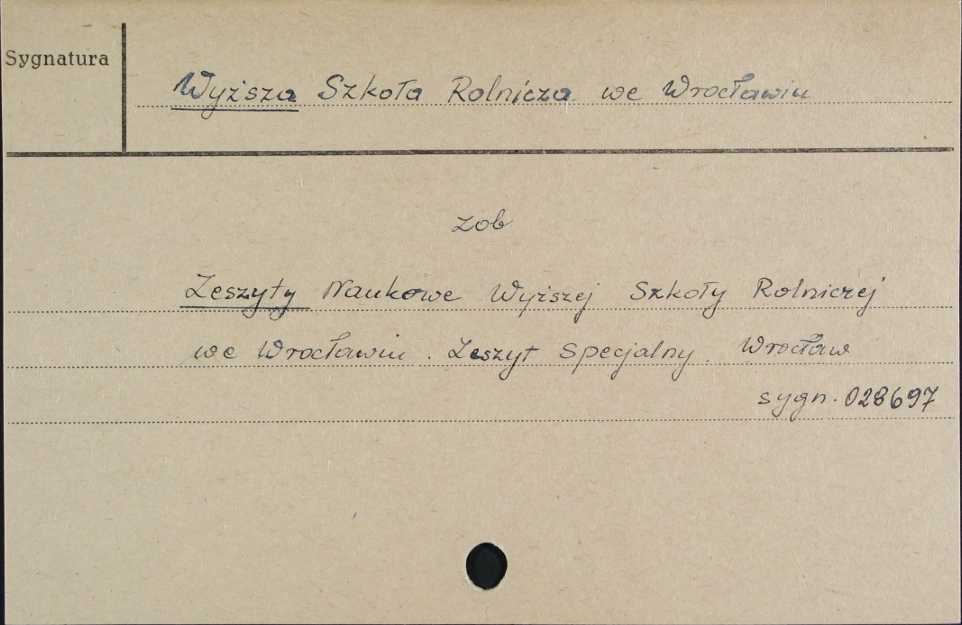 Sygnatura
Wyższa Szkoła Rolnicza we Wrocławiu
zob
Zeszyty Naukowe Wyższej Szkoły Rolniczej
we Wrocławiu. Zeszyt Specjalny. Wrocław
sygn. 028697